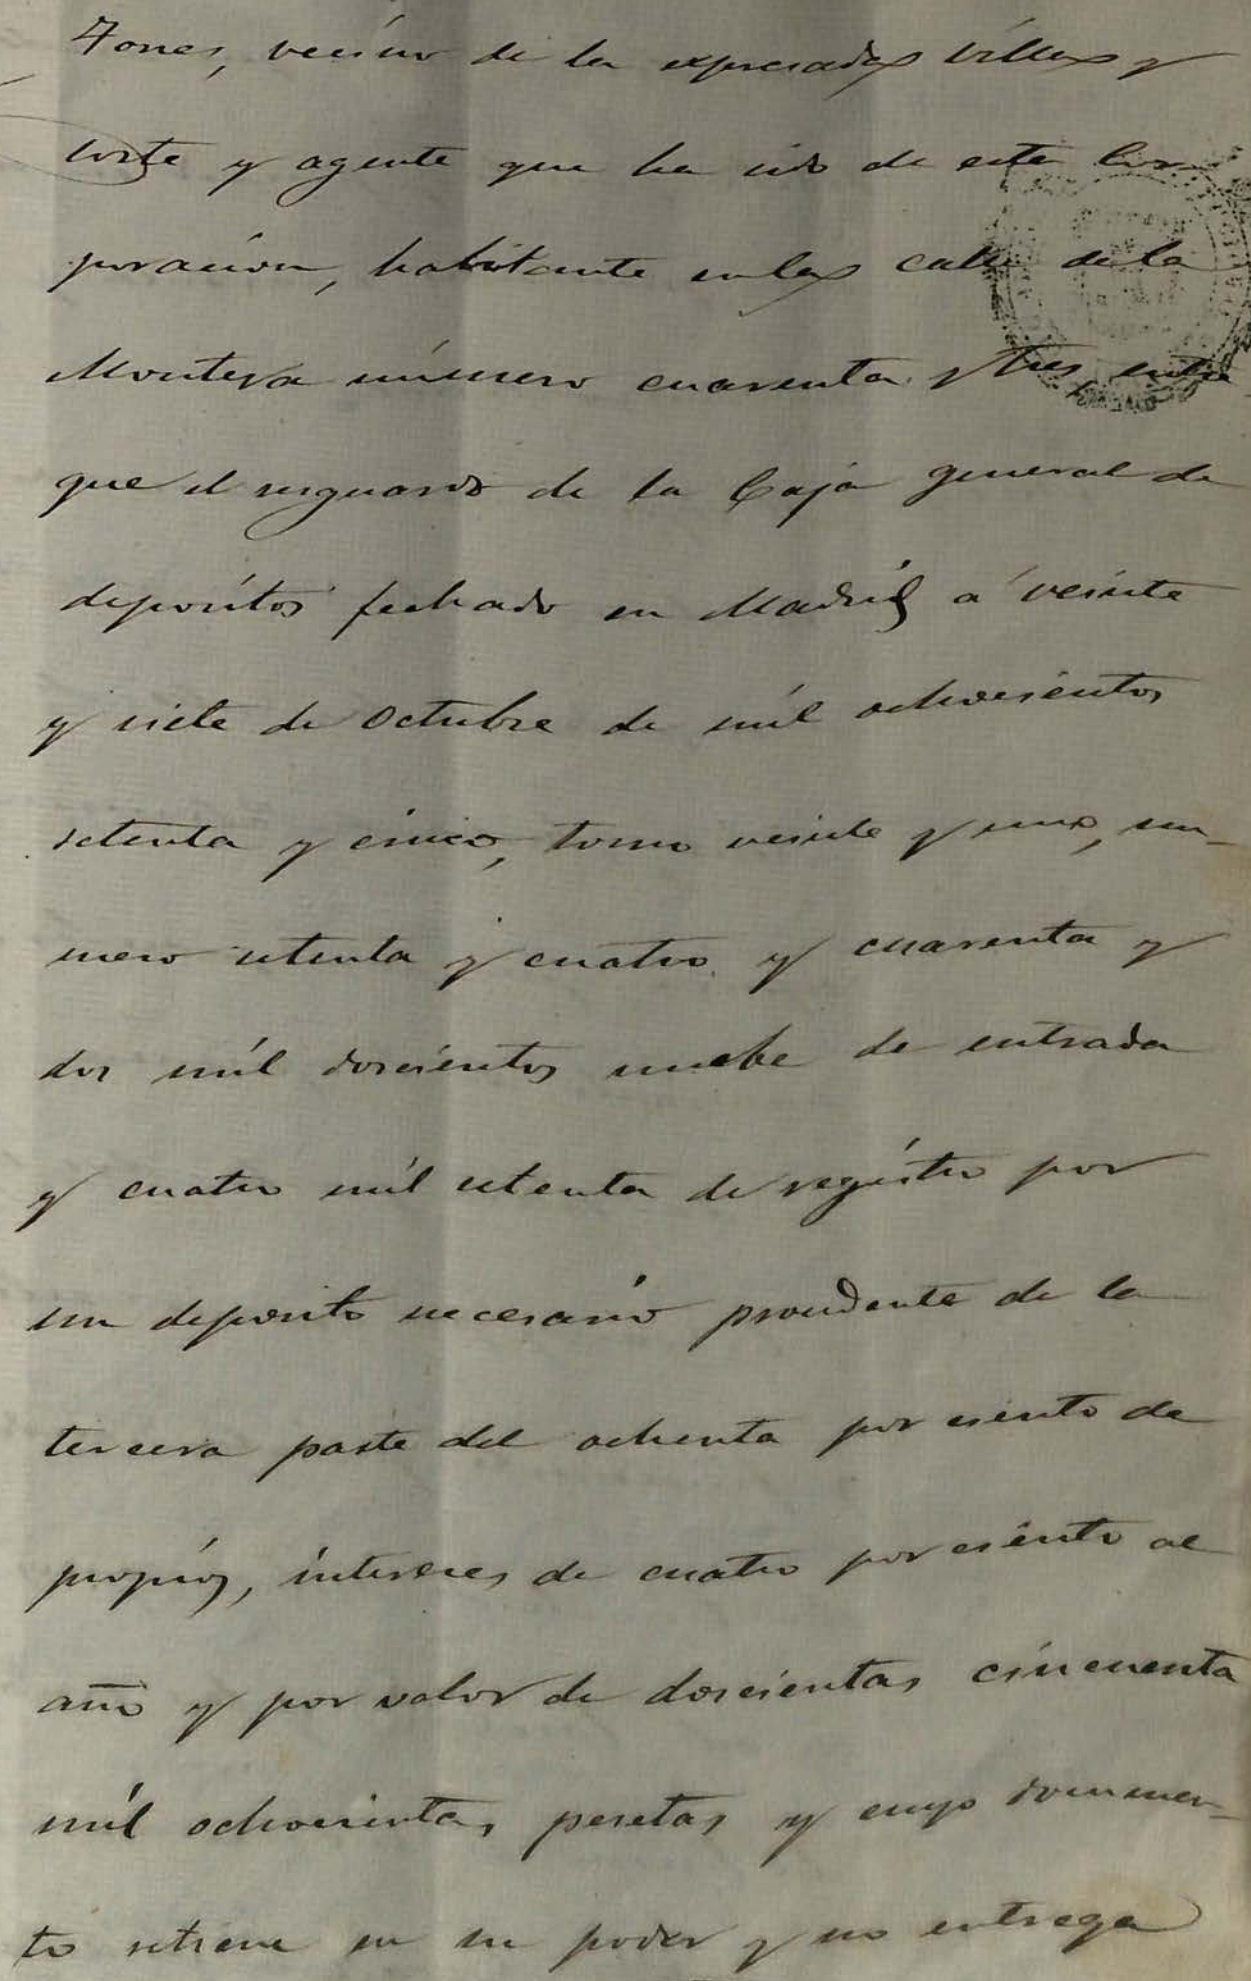 Tones, vecino de la expresada villa y
corte y agente que ha sido de esta Cor
poracion, habitante en la calle de la
Montera número cuarenta y tres, entre
que el resguardo de la Caja general de
depósitos fechado en Madrid á veinte
y siete de Octubre de mil ochocientos
setenta y cinco, tomo veinte y uno, nu-
mero setenta y cuatro y cuarenta y
dos mil doscientos nuebe de entrada
y cuatro mil setenta de registro por
un deposito necesario procedente de la
tercera parte del ochenta por ciento de
propios, interes de cuatro por ciento al
año y por valor de doscientas cincuenta
mil ochocientas pesetas y cuyo documen-
to retiene en su poder y no entrega